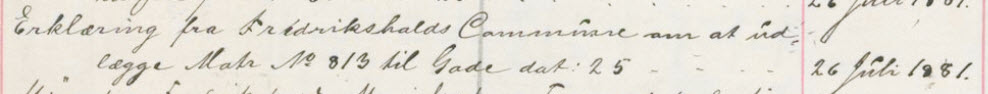 26 Juli 1881.
Erklæring fra Fredrikshalds Commune om at ud-
lægge Matr No 813 til Gade dat: 25 - - - - 26 Juli 1881.